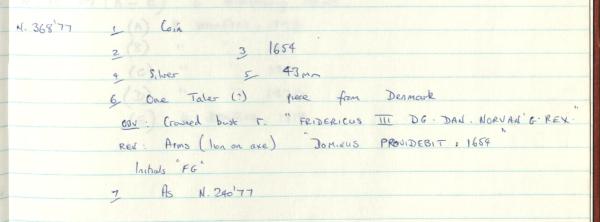 N. 368'77 1 Coin
2 3 1654
4 Silver 5 43mm
6 One Taler (?) piece from Denmark
OBV: Crowned bust r. "FRIDERICUS III DG. DAN. NORVAN'G. REX."
REV: Arms (lion on axe) "DOMINUS PROVIDEBIT: 1654"
Initials "FG"
7 As N. 240'77